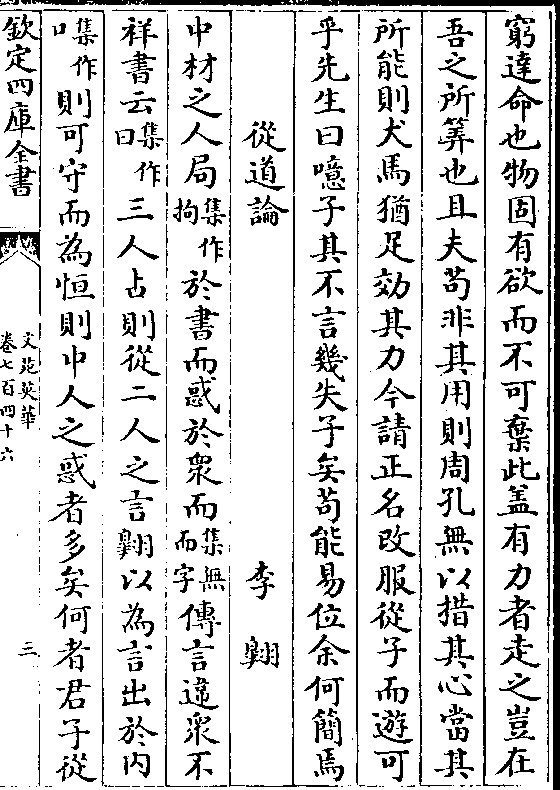 窮達命也物固有欲而不可棄此盖有力者走之豈在
吾之所筭也且夫苟非其用則周孔無以措其心當其
所能則犬馬猶足効其力今請正名改服從子而遊可
乎先生曰噫子其不言幾失子矣苟能易位余何簡焉
從道論 李翺
中材之人局集作拘於書而惑於衆而集無而字傳言違衆不
祥書云集作曰三人占則從二人之言翺以為言出於内
集作口則可守而為恒則中人之惑者多矣何者君子從
欽定四庫全書
文苑英華
卷七百四十六
三